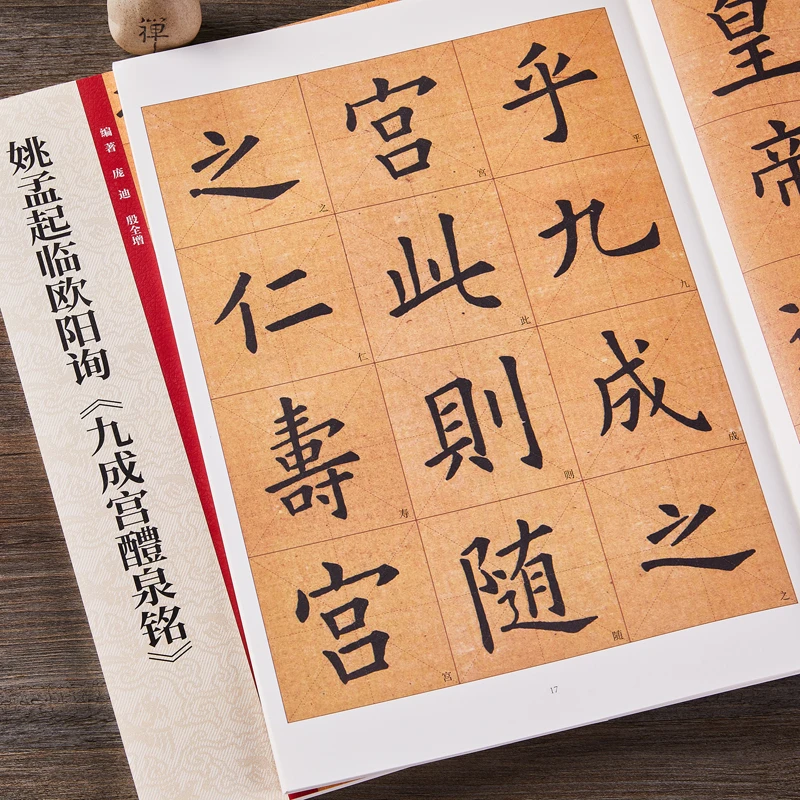 禪
姚孟起临欧阳询《九成宫醴泉铭》
编著 庞迪 殷全增
皇帝
乎九成之
乎
九
成
之
宮此則随
宮
此
則
随
之仁壽宮
之
仁
寿
宮
17